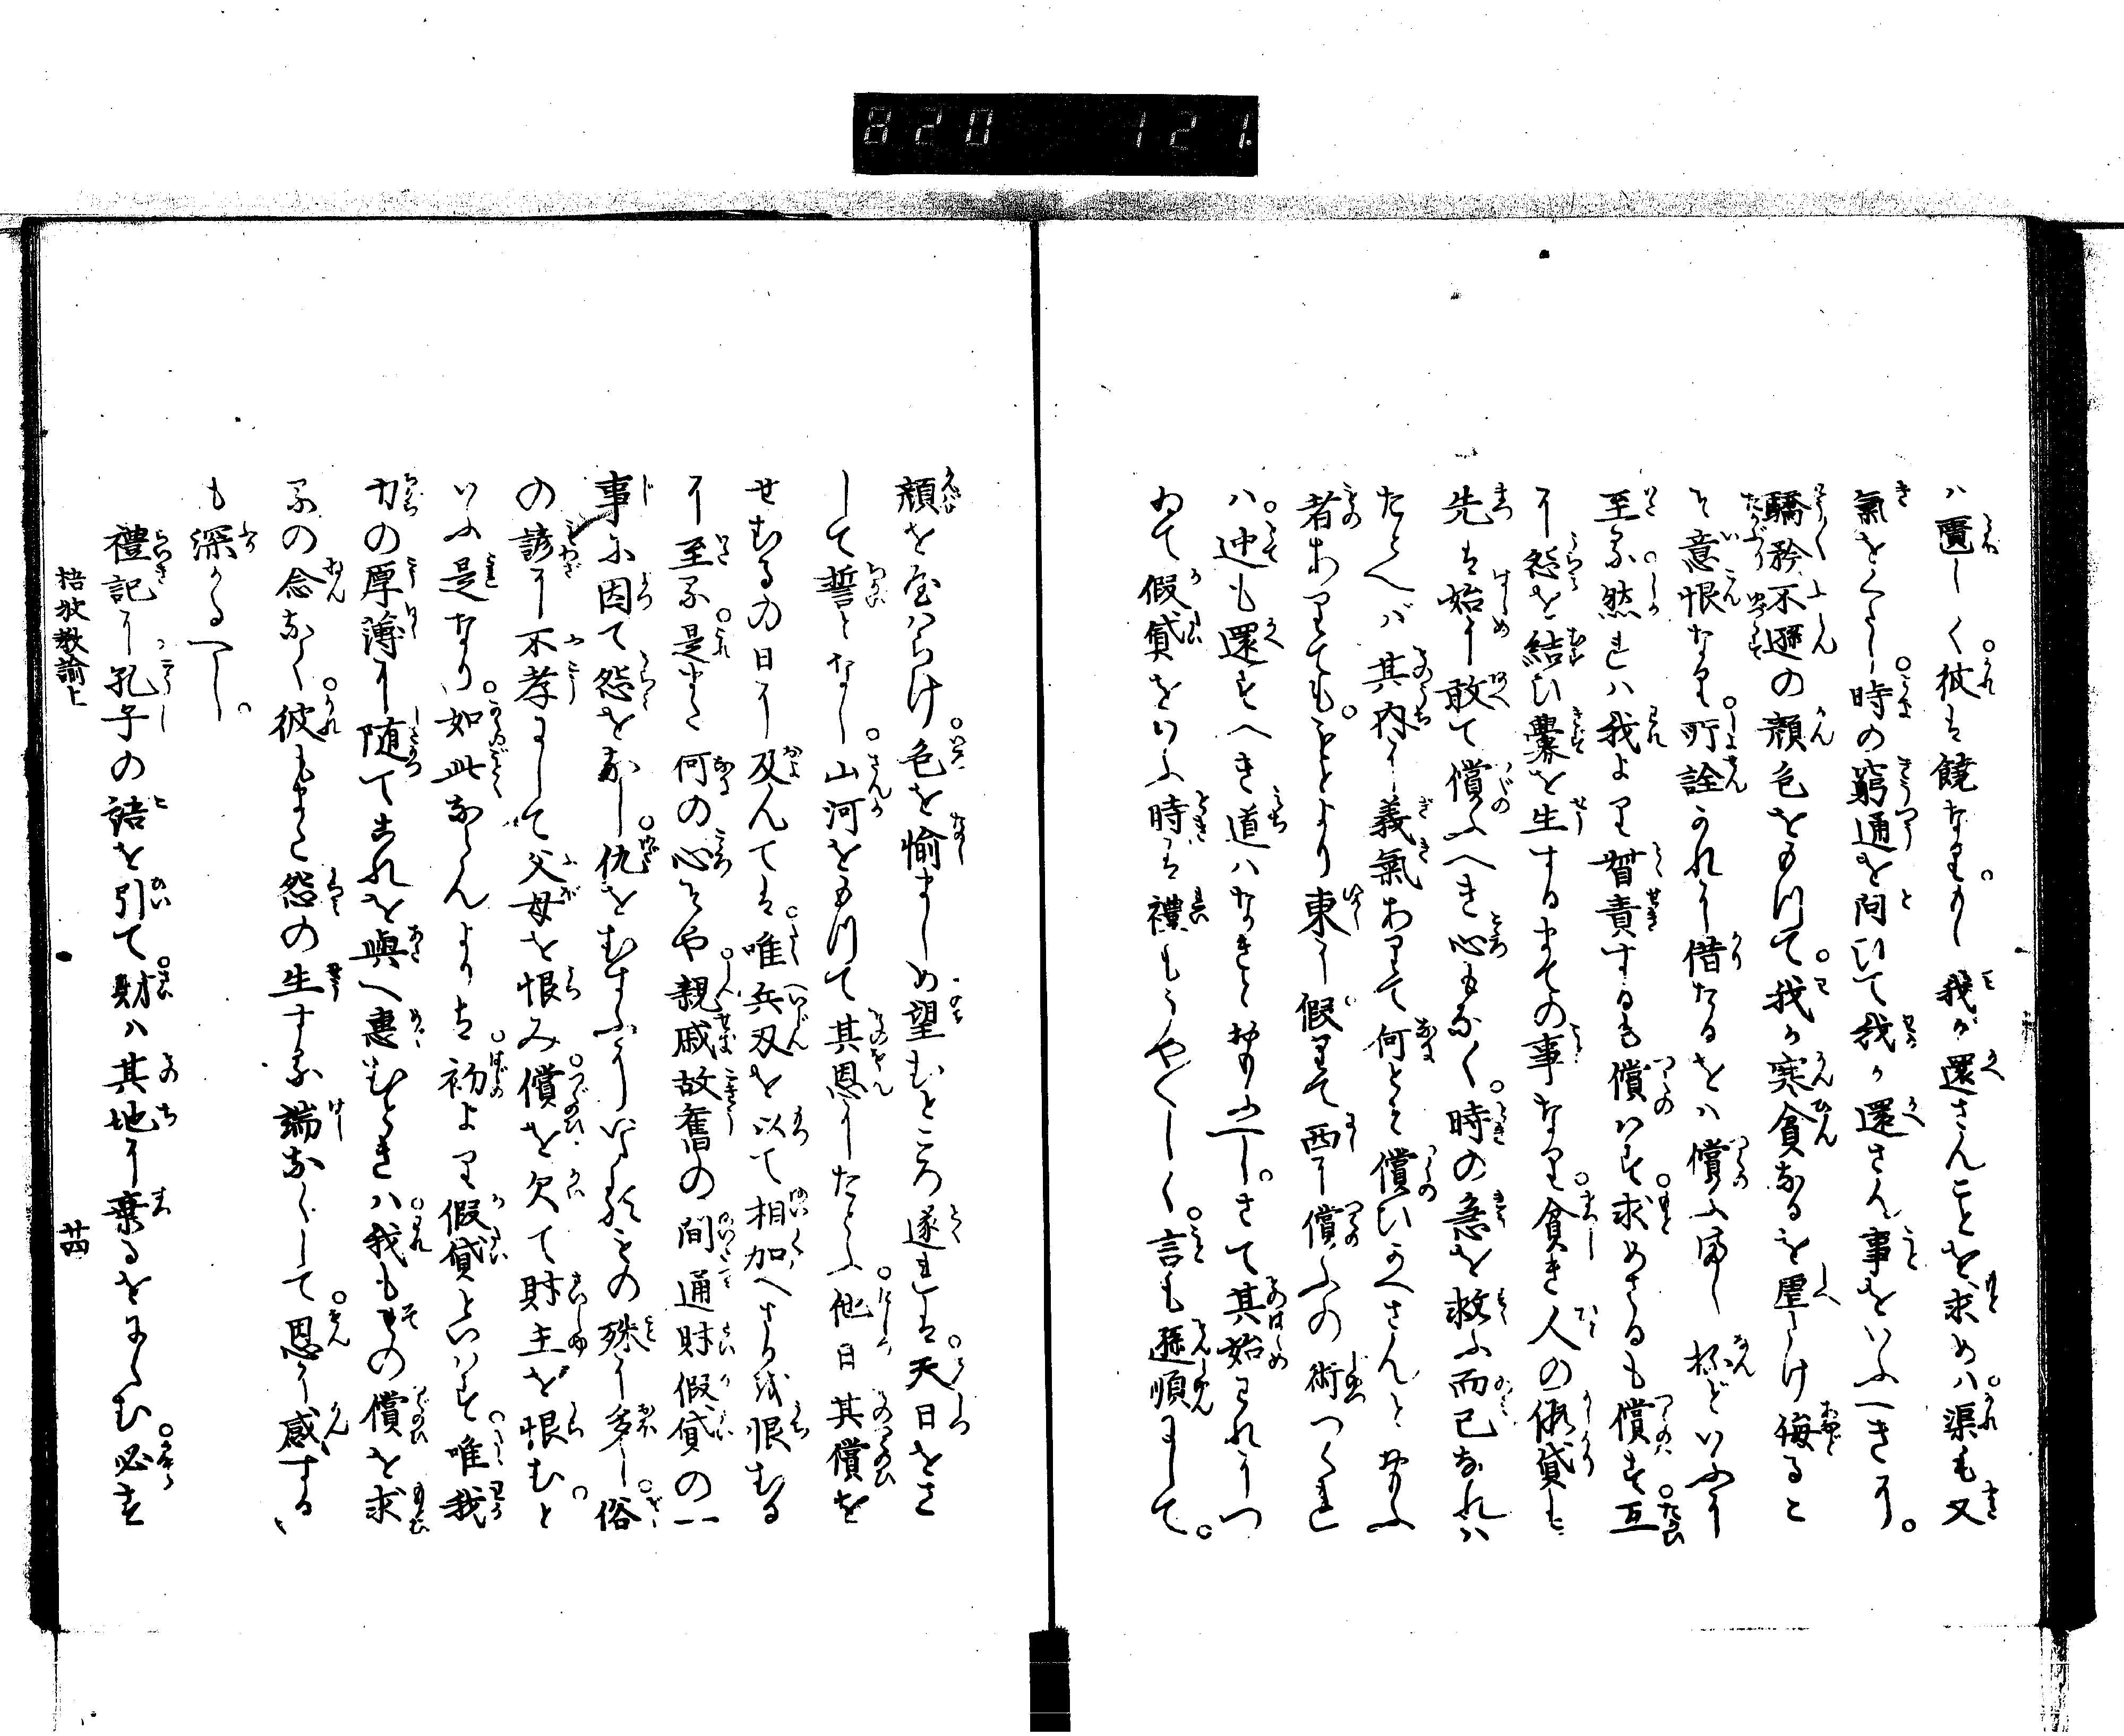 820 121.
ハ匱しく。彼は饒なり。もし我が還さんことを求めハ。渠も又
氣をくだし。時の窮通を問ひて我が還さん事をいふべきに。
驕矜不遜の顔色をもつて。我が寒貧なるを虐げ侮ること
意恨なり。所詮かれに借たるをハ償ふまし杯どいふに
至る。然れハ我より督責するも償ハず。求めざるも償ず。互
に怨を結び釁を生するまての事なり。貧き人の假貸は
先は始に敢て償ふへき心もなく。時の急を救ふ而已なれハ
たとへバ其内に義氣ありて何とそ償ひかへさんとおもふ
者ありても。もとより東に假りて西に償ふの術つくれ
ハ。迚も還すへき道ハなきとおもふべし。さて其始われにつ
ゐて假貸をいふ時は。禮もうや〳〵しく。言も遜順にして。
顔を和らけ。色を愉ましめ望むところ遂れは。天日をさ
して誓となし。山河をもつて其恩にたとふ。他日其償を
せむるの日に及んては。唯兵刃を以て相加へさるを恨むる
に至る。是また何の心そや。親戚故舊の間通財假貸の一
事に因て怨をなし。仇をむすふにいたるもの殊に多し。俗
の諺に不孝にして父母を恨み。償を欠て財主を恨むと。
いふ是なり。如此ならんよりは。初より假貸といハず。唯我
力の厚薄に随てこれを與へ惠むときハ。我もその償を求
るの念なく。彼もまた怨の生する端なくして。恩に感する
も深かるべし。
禮記に孔子の語を引て。財ハ其地に棄るをにくむ。必ず
捂拔教諭上
廿四